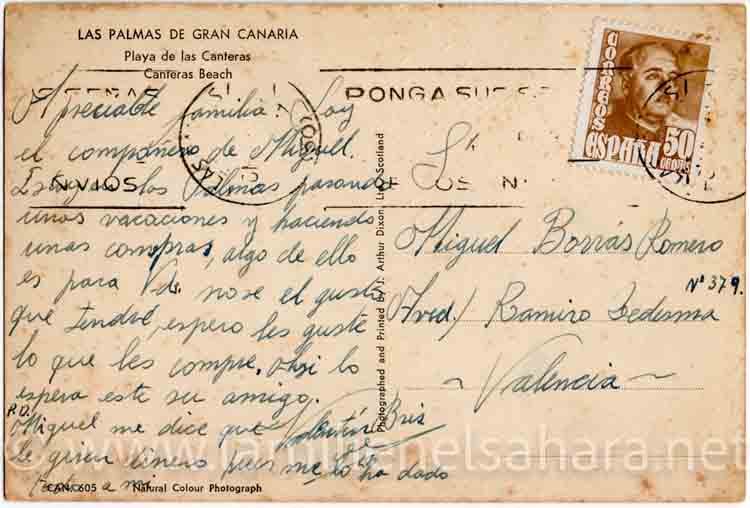 LAS PALMAS DE GRAN CANARIA
Playa de las Canteras
Canteras Beach
Apreciable familia: Soy
el compañero de Miguel.
Estoy en las Palmas pasando
unas vacaciones y haciendo
unas compras, algo de ello
es para Vds. no se el gusto
que tendré, espero les guste
lo que les compre. Asi lo
espera este su amigo.
Valentín Bris
P.D.
Miguel me dice que
le giren dinero pues me lo ha dado
a mi
CAN. 605 Natural Colour Photograph
Photographed and Printed by J. Arthur Dixon, Ltd., Scotland
PONGA SUS SE
ENVIOS
CORREOS
ESPAÑA
50
CENTS
Sr.
Miguel Borrás Romero
Nº 379.
Aved/ Ramiro Ledesma
~ Valencia ~
© www.lamilienelsahara.net